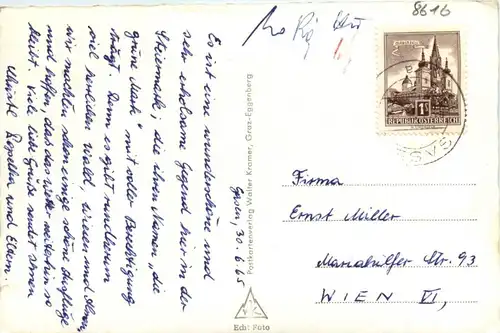 8616
Gasen, 30.6.65
Es ist eine wunderschöne und
sehr erholsame Gegend hier in der
Steiermark, die ihren Namen „die
grüne Mark" mit voller Berechtigung
trägt. Denn es gibt rundherum
viel herrlichen Wald, Wiesen und
wir machten schon einige schöne Ausflüge
und hoffen, daß das Wetter weiterhin so
bleibt. Viele liebe Grüße sendet Ihnen
und Eltern.
Postkartenverlag Walter Kramer, Graz-Eggenberg
Echt Foto
1S
REPUBLIK ÖSTERREICH
Firma
Ernst Miller
Mariahilfer Str. 93
WIEN VI,